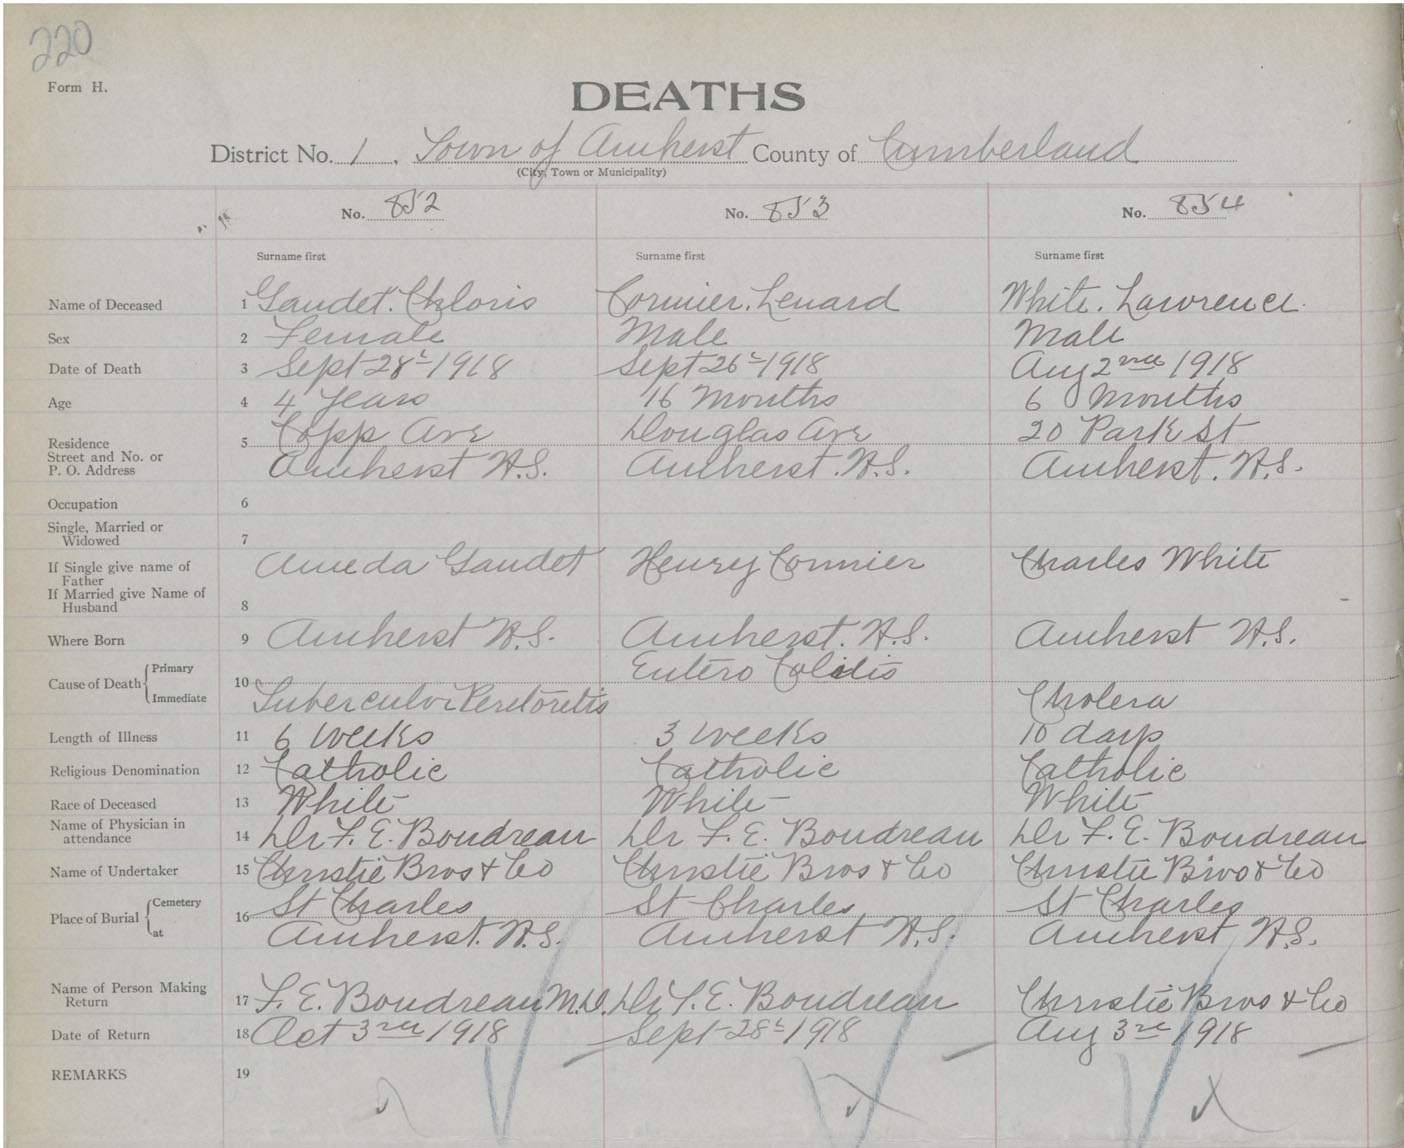 220
Form H.
DEATHS
District No. 1, Town of Amherst County of Cumberland
(City, Town or Municipality)
No. 852 No. 853 No. 854
Surname first Surname first Surname first
Name of Deceased 1 Gaudet. Chloris Cormier. Lenard White. Lawrence.
Sex 2 Female Male Male
Date of Death 3 Sept 28t 1918 Sept 26t 1918 Aug 2nd 1918
Age 4 4 Years 16 Months 6 Months
Residence 5 Copp Ave Douglas Ave 20 Park St
Street and No. or
P. O. Address Amherst N.S. Amherst. N.S. Amherst. N.S.
Occupation 6
Single, Married or
Widowed 7
If Single give name of
Father Ameda Gaudet Henry Cormier Charles White
If Married give Name of
Husband 8
Where Born 9 Amherst N.S. Amherst. N.S. Amherst N.S.
Cause of Death Primary 10 Entero Colitis
Immediate Tubercular Peretoretis Cholera
Length of Illness 11 6 weeks 3 weeks 10 days
Religious Denomination 12 Catholic Catholic Catholic
Race of Deceased 13 White White White
Name of Physician in
attendance 14 Dr F. E. Boudreau Dr F. E. Boudreau Dr F. E. Boudreau
Name of Undertaker 15 Christie Bros & Co Christie Bros & Co Christie Bros & Co
Place of Burial Cemetery 16 St Charles St Charles St Charles
at Amherst. N.S. Amherst N.S. Amherst N.S.
Name of Person Making
Return 17 F. E. Boudreau M.D. Dr F. E. Boudreau Christie Bros & Co
Date of Return 18 Oct 3rd 1918 Sept 28t 1918 Aug 3rd 1918
REMARKS 19